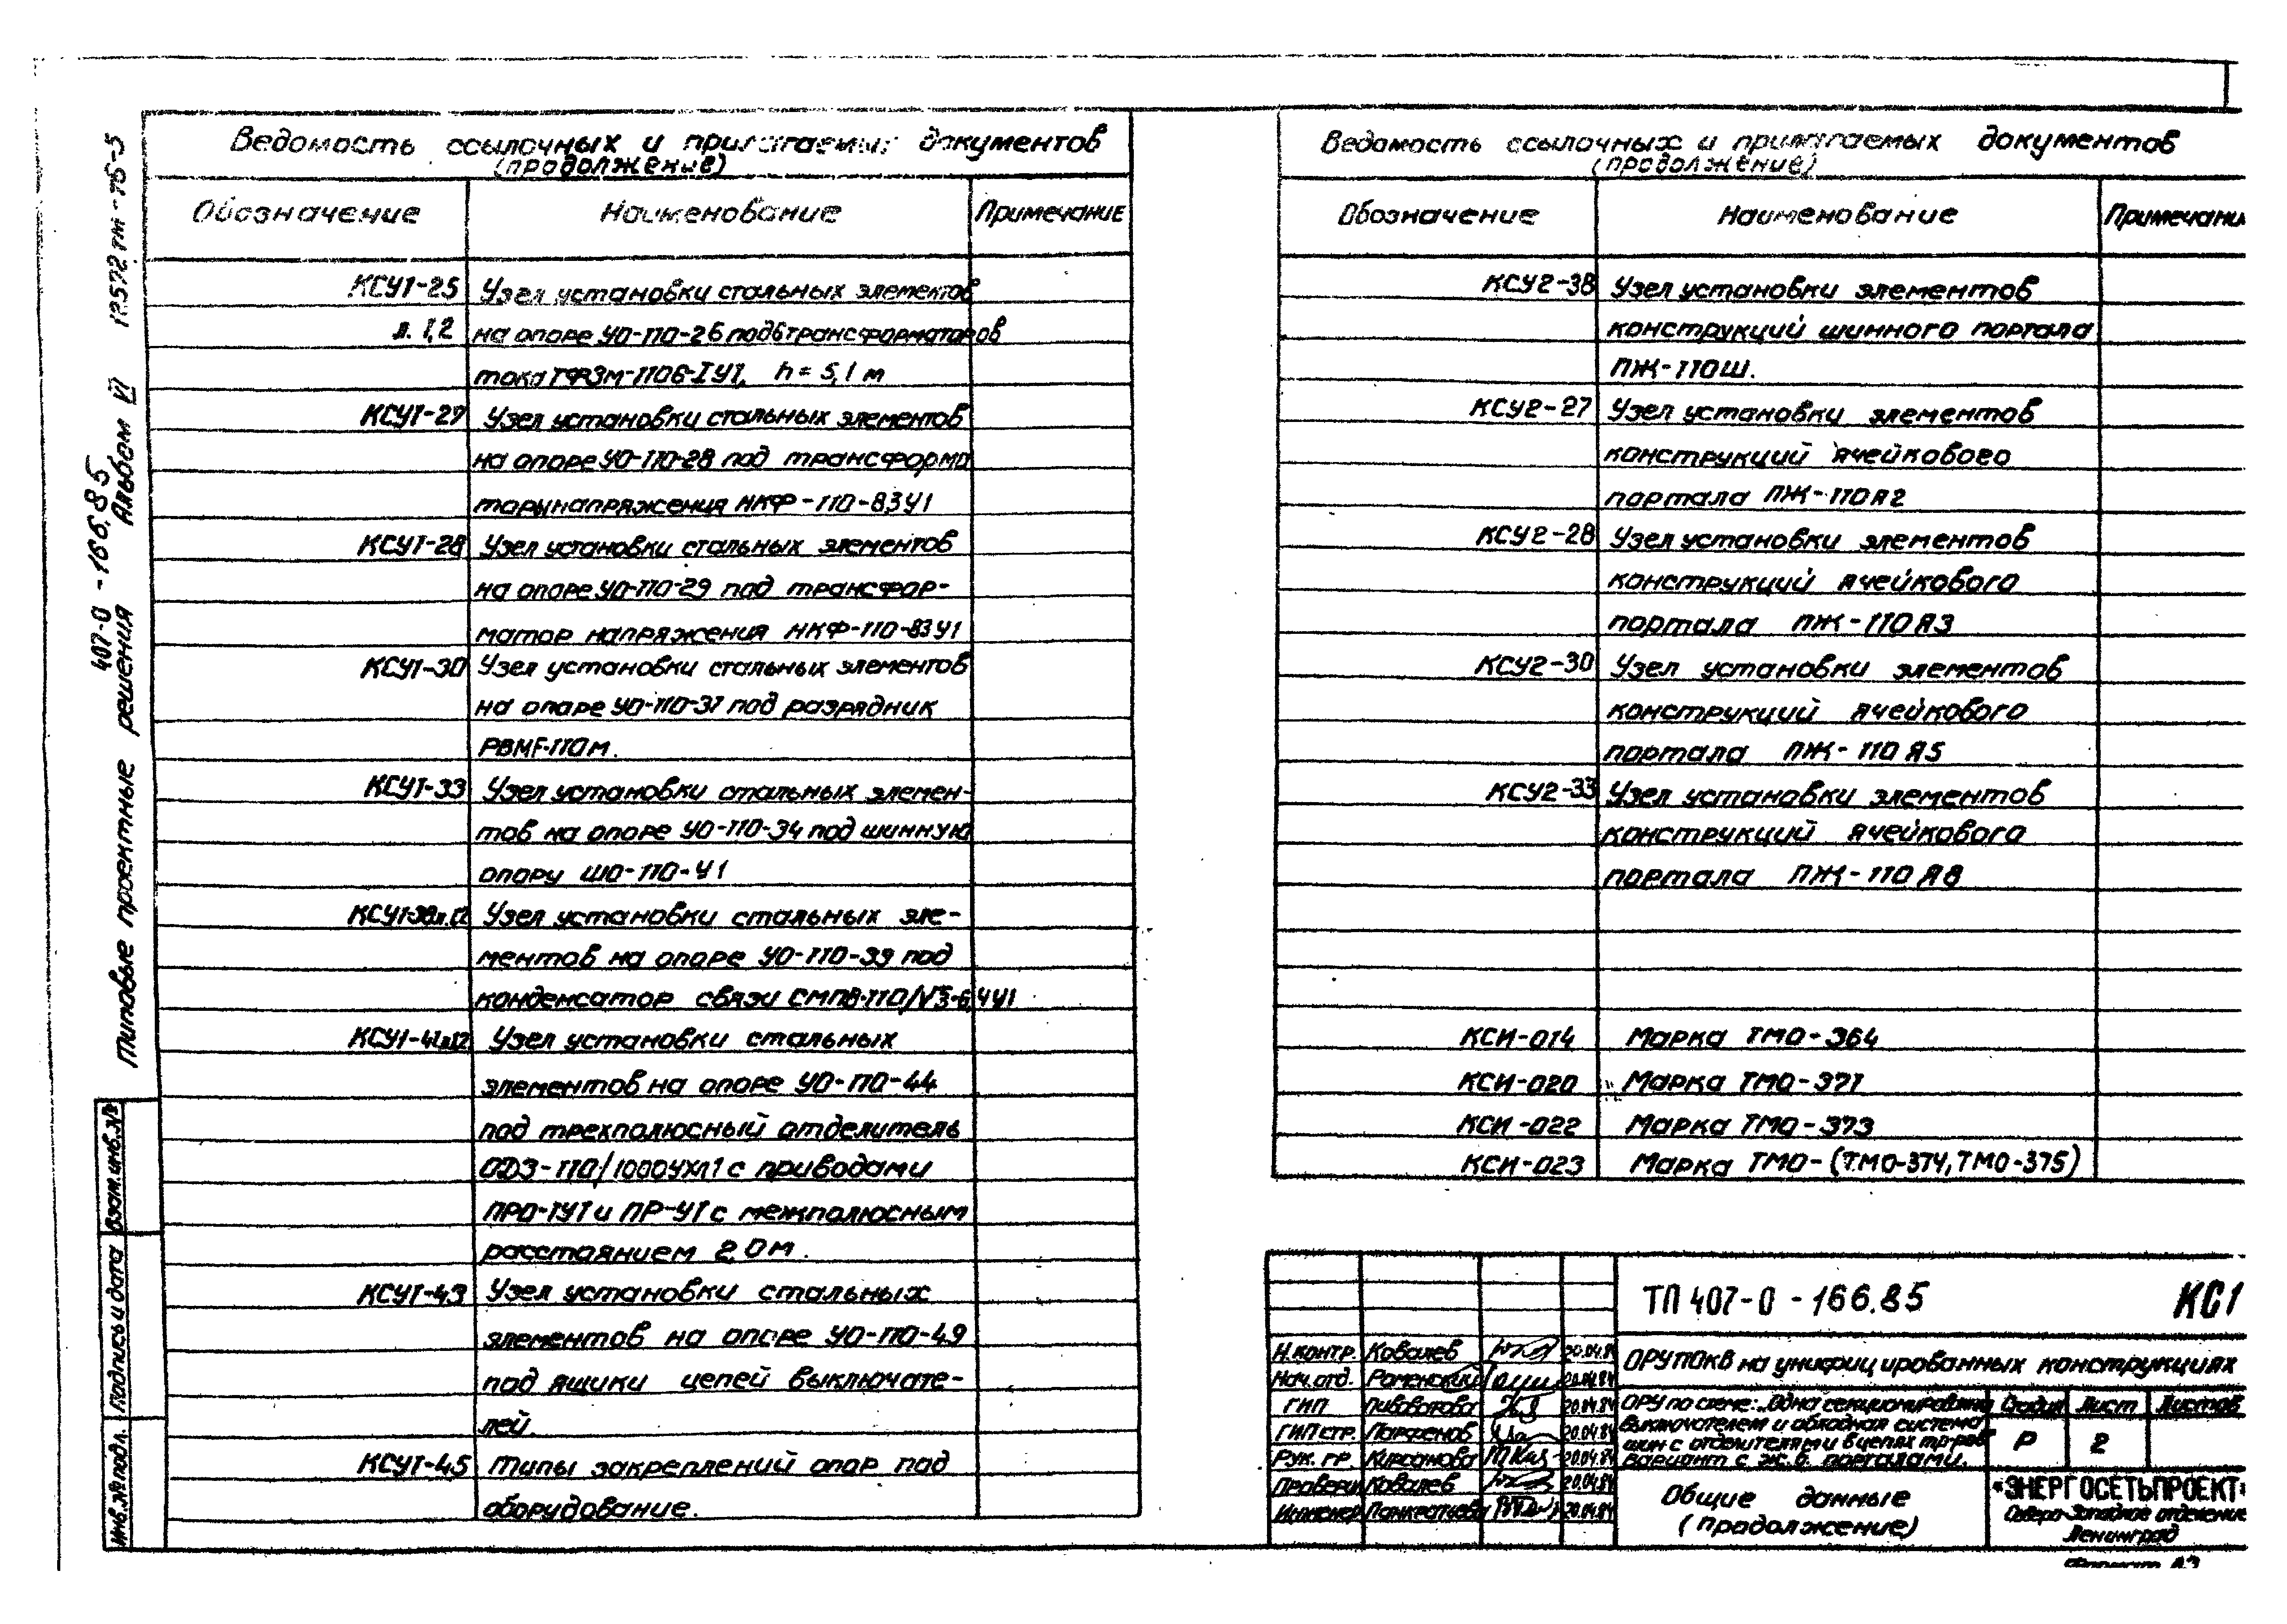 Ведомость ссылочных и прилагаемых документов
(продолжение)
Обозначение Наименование Примечание
КСУ1-25 Узел установки стальных элементов
л. 1,2 на опоре УО-110-26 под 6 трансформаторов
тока ТФЗМ-110Б-IУ1, h = 5,1 м
КСУ1-27 Узел установки стальных элементов
на опоре УО-110-28 под трансформа
торы напряжения НКФ-110-83У1
КСУ1-28 Узел установки стальных элементов
на опоре УО-110-29 под трансфор-
матор напряжения НКФ-110-83У1
КСУ1-30 Узел установки стальных элементов
на опоре УО-110-31 под разрядник
РВМГ-110М.
КСУ1-33 Узел установки стальных элемен-
тов на опоре УО-110-34 под шинную
опору ШО-110-У1
Узел установки стальных эле-
ментов на опоре УО-110-39 под
конденсатор связи СМПВ-110/√3-6,4У1
Узел установки стальных
элементов на опоре УО-110-44
под трехполюсный отделитель
ОДЗ-110/1000УХЛ1 с приводами
ПРО-1У1 и ПР-У1 с межполюсным
расстоянием 2,0 м.
КСУ1-43 Узел установки стальных
элементов на опоре УО-110-49
под ящики цепей выключате-
лей.
КСУ1-45 Типы закреплений опор под
оборудование.
Ведомость ссылочных и прилагаемых документов
(продолжение)
Обозначение Наименование Примечани
КСУ2-38 Узел установки элементов
конструкций шинного портала
ПЖ-110Ш.
КСУ2-27 Узел установки элементов
конструкций ячейкового
портала ПЖ-110Я2
КСУ2-28 Узел установки элементов
конструкций ячейкового
портала ПЖ-110Я3
КСУ2-30 Узел установки элементов
конструкций ячейкового
портала ПЖ-110Я5
КСУ2-33 Узел установки элементов
конструкций ячейкового
портала ПЖ-110Я8
КСИ-014 Марка ТМО-364
КСИ-020 Марка ТМО-371
КСИ-022 Марка ТМО-373
КСИ-023 Марка ТМО-(ТМО-374, ТМО-375)
ТП 407-0-166.85 КС1
Н.контр. Ковалев 20.04.84
Нач.отд. Роменский 20.04.84
ГИП Пивоварова 20.04.84
ГИП стр. Парфенов 20.04.84
Рук. гр Кирсанова 20.04.84
Проверил Ковалев 20.04.84
Инженер 20.04.84
ОРУ 110кВ на унифицированных конструкциях
ОРУ по схеме: „Одна секционирована
выключателем и обходная система
шин с отделителями в цепях тр-ров
вариант с ж.б. порталами.
Стадия Лист Листов
Р 2
Общие данные
(продолжение)
«ЭНЕРГОСЕТЬПРОЕКТ»
Северо-Западное отделение
Ленинград
Формат А3
Типовые проектные решения Альбом VI
407-0-166.85
12572тм-т6-5
Взам.инв.№
Подпись и дата
Инв.№ подл.